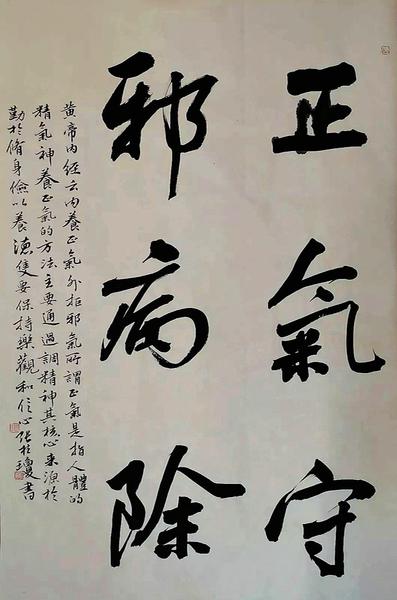 正氣守
邪病除
黄帝内經云内養正氣外拒邪氣所謂正氣是指人體的
精氣神養正氣的方法主要通過調精神其核心來源於
勤於脩身儉以養德隻要保持樂觀和信心張桂瓊書